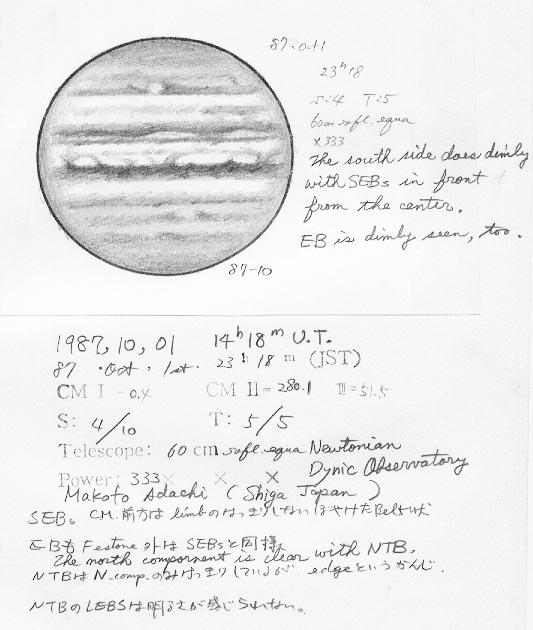 87·Oct·1
23ʰ18
S:4 T:5
60cm refl. equa
×333
The south side does dimly
with SEBs in front
from the center.
EB is dimly seen, too.
87-10
1987, 10, 01 14ʰ 18ᵐ U.T.
87 ·Oct· 1st. 23ʰ 18ᵐ (JST)
CM I = 0.4 CM II = 280.1 III = 51.5
S: 4/10 T: 5/5
Telescope: 60 cm refl. equa Newtonian
Dynic Observatory
Power: 333× × ×
Makoto Adachi (Shiga Japan)
SEBs CM.前方はlimbのはっきりしないぼやけたBelt状
EBもFestone外はSEBsと同様
The north compornent is clear with NTB.
NTBはN.comp.のみはっきりしているが edgeというかんじ.
NTBのLEBSは明るさが感じられない。